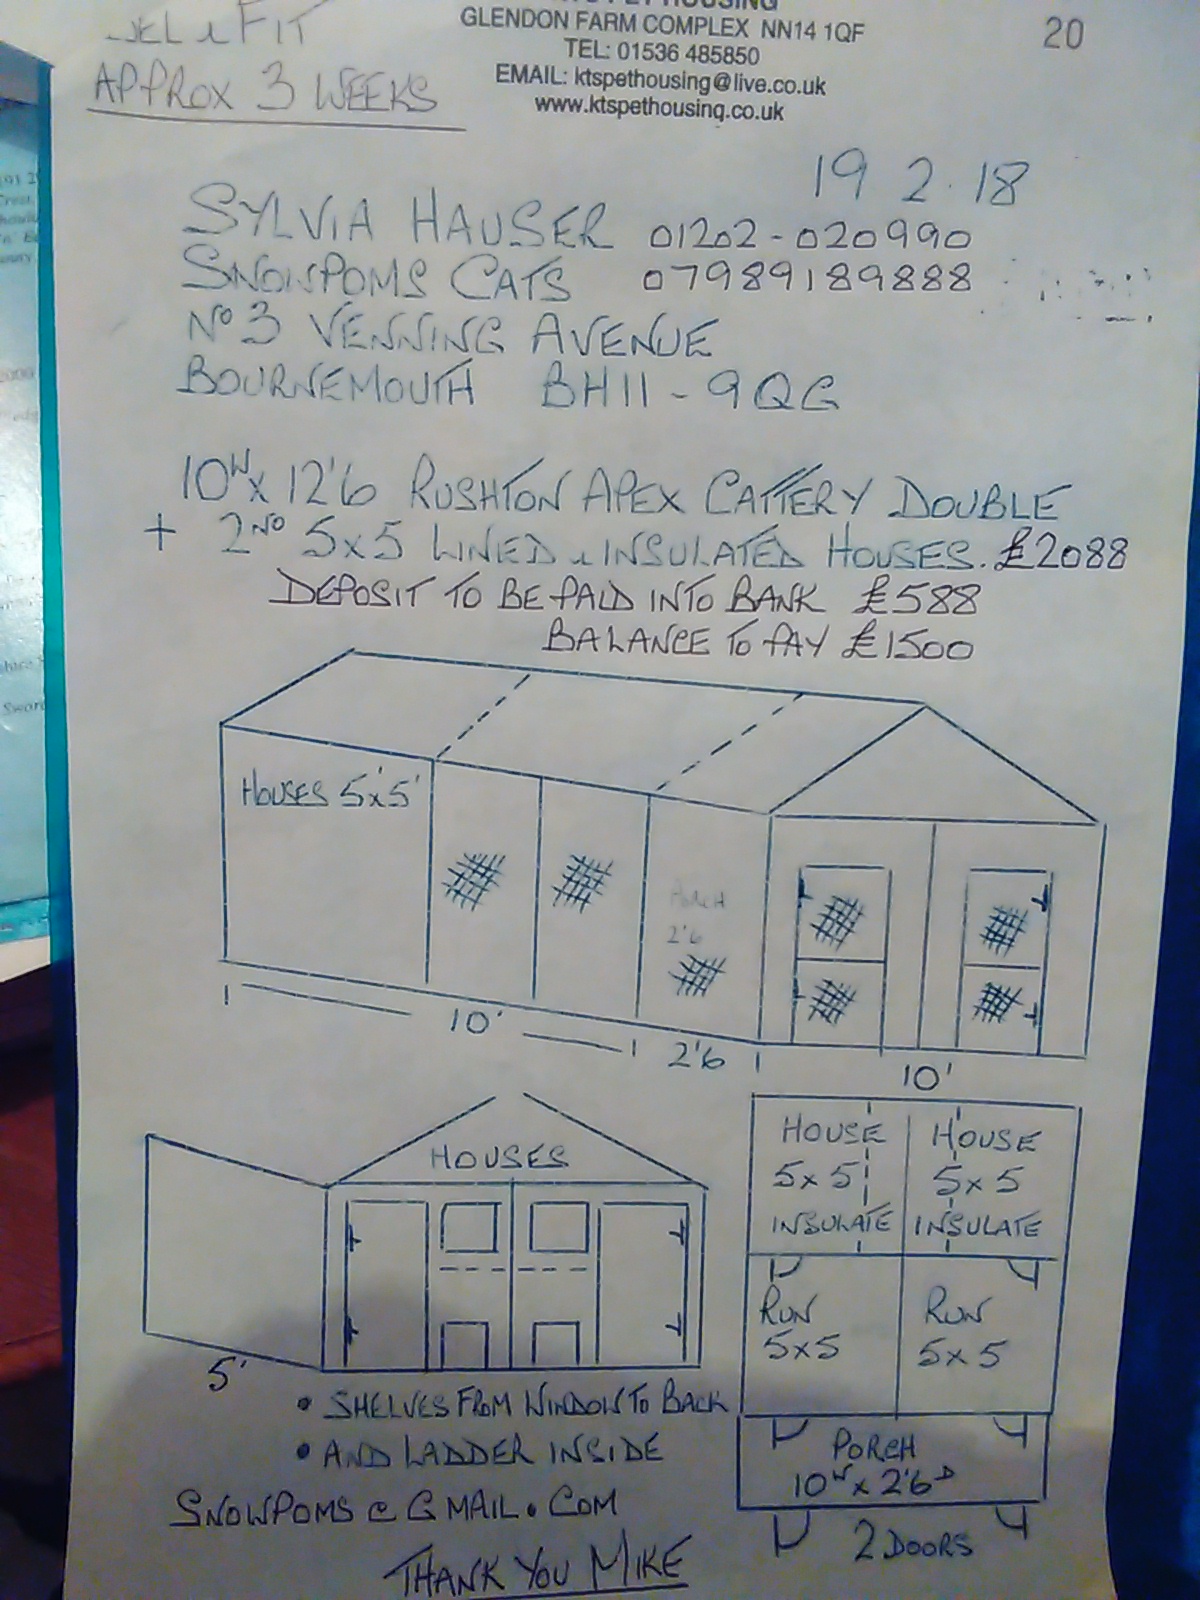 DEL & FIT
APPROX 3 WEEKS
PET HOUSING
GLENDON FARM COMPLEX NN14 1QF
TEL: 01536 485850
EMAIL: ktspethousing@live.co.uk
www.ktspethousing.co.uk
20
19 2.18
SYLVIA HAUSER 01202-020990
SNOWPOMS CATS 07989189888
No 3 VENNING AVENUE
BOURNEMOUTH BH11-9QG
10W x 12'6 RUSHTON APEX CATTERY DOUBLE
+ 2NO 5x5 LINED & INSULATED HOUSES. £2088
DEPOSIT TO BE PAID INTO BANK £588
BALANCE TO PAY £1500
HOUSES 5'x5'
PORCH
2'6
10'
2'6
10'
HOUSES
5'
HOUSE
5x5
INSULATE
HOUSE
5x5
INSULATE
RUN
5x5
RUN
5x5
PORCH
10W x 2'6D
2 DOORS
• SHELVES FROM WINDOW TO BACK
• AND LADDER INSIDE
SNOWPOMS@GMAIL.COM
THANK YOU MIKE